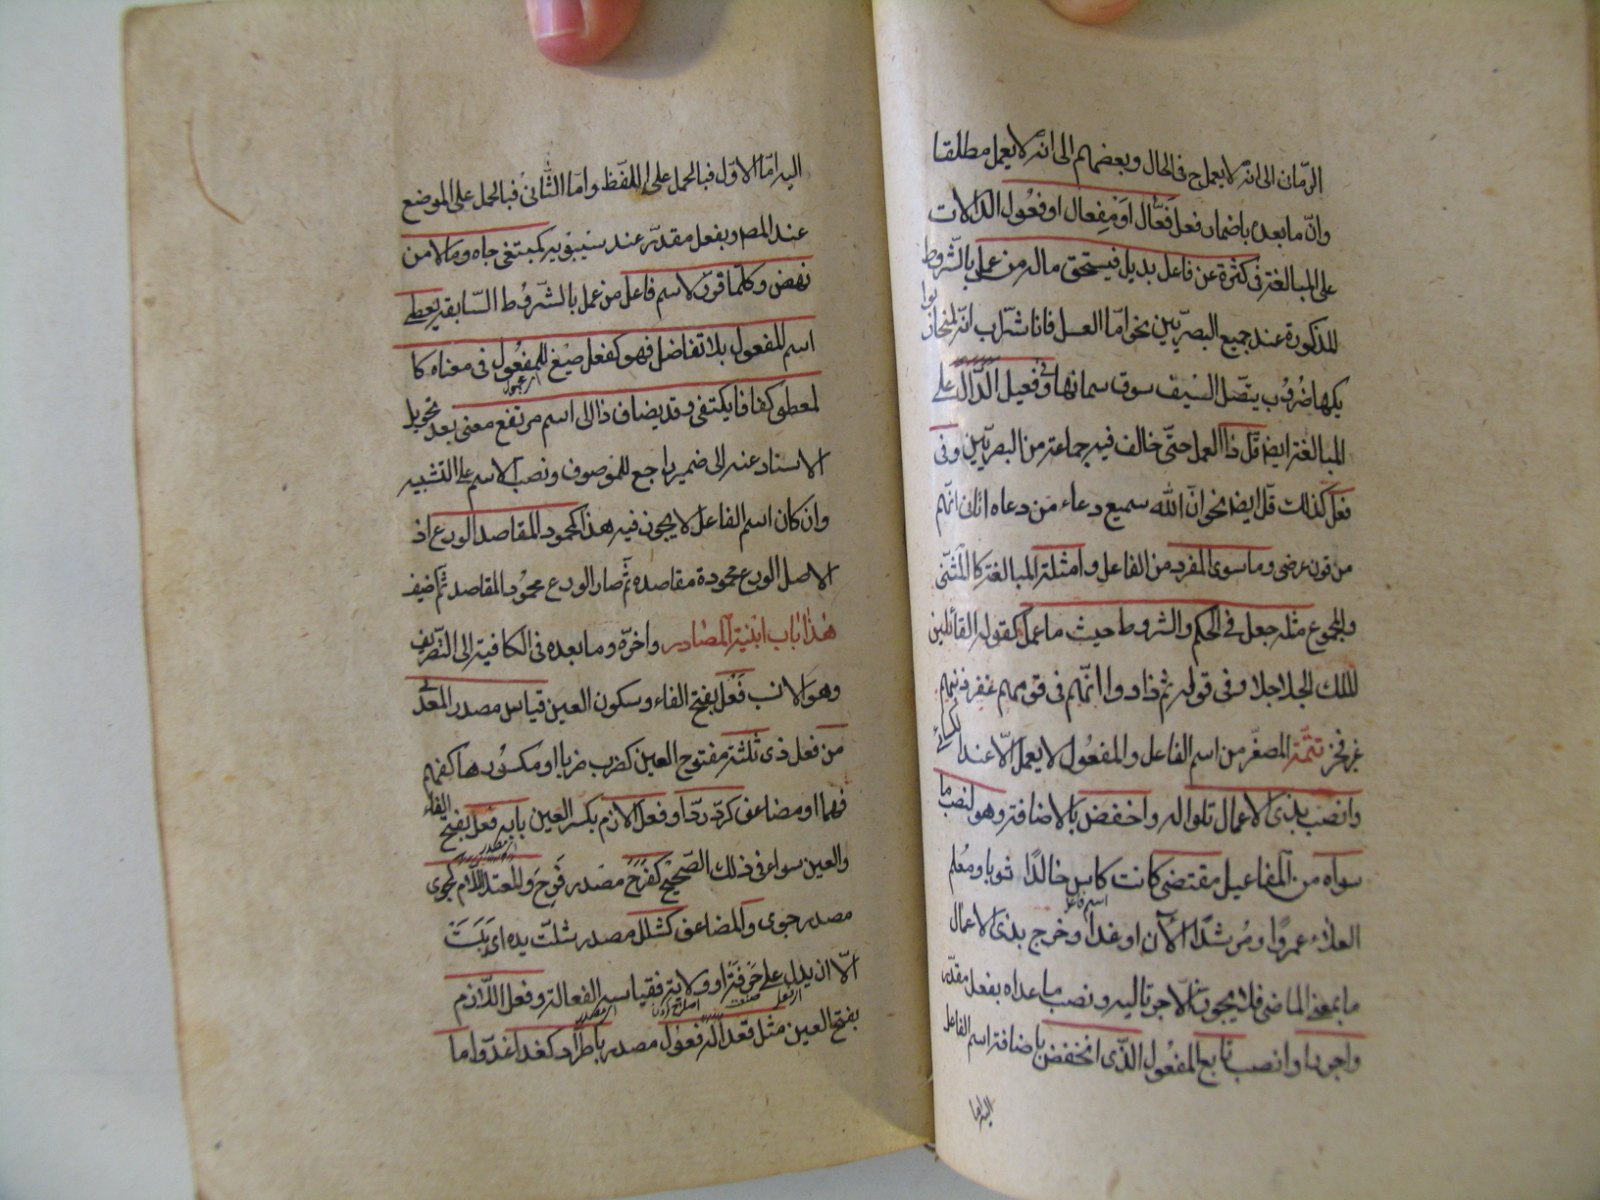 الزمان الى انه لا يعمل ح فى الحال وبعضهم الى انه لا يعمل مطلقا
وانّ ما بعده باضمار فعل فَعّال او مِفعال او فعُول الدالات
على المبالغة فى كثرة عن فاعل بديل فيستحق ماله من عمل بالشروط
المذكورة عند جميع البصريين نحو امّا العسل فانا شرّاب انّه لمنحار
بوائكها ضروب بنصل السيف سوق سمانها وفى فعيل الدّال على
المبالغة ايضا قل ذا العمل حتّى خالف فيه جماعة من البصريين وفى
فعل كذلك قلّ ايضا نحو انّ الله سميع دعاء من دعاه اتانى انّهم
مزقون عرضى وما سوى المفرد من الفاعل وامثلة المبالغة كالمثنّى
والمجموع مثله جعل فى الحكم والشروط حيث ما عمل كقوله القاتلين
الملك الحلاحلا وفى قوله ثم زادوا انّهم فى قومهم غفر ذنبهم
غير فخر تتمّة المصغّر من اسم الفاعل والمفعُول لا يعمل الّا عند الكسائى
وانصب بذى الاعمال تلوا له واخفض بالاضافة وهو لنصب ما
سواه من المفاعيل مقتضى كانت كاسٍ خالدًا ثوبا ومُعلم
العلاء عمروًا ومُرشدًا الآن او غدا وخرج بذى الاعمال
اسم فاعل
ما بمعنى الماضى فلا يجوز الّا جر تاليه ونصب ما عداه بفعل مقدّر
واجرر او انصب تابع المفعُول الّذى انخفض باضافة اسم الفاعل
اليه اما
اليه امّا الاوّل فبالحمل على اللفظ وامّا الثّانى فبالحمل على الموضع
عند المصـ وبفعل مقدّر عند سيبويه كمبتغى جاه ومالا من
نهض وكلّما قرّر لاسم فاعل من عمل بالشّروط السّابقة يعطى
اسم المفعول بلا تفاضل فهو كفعل صيغ للمفعُول فى معناه كا
لمعطى كفافا يكتفى وقد يضاف ذا الى اسم مرتفع معنى بعد تحويل
الاسناد عنه الى ضمير راجع للموصوف ونصب الاسم على التشبيه
وان كان اسم الفاعل لا يجوز فيه هذا كمحمود المقاصد الورع اذ
الاصل الورع محمودة مقاصده ثم صار الورع محمُود المقاصد ثم اضيف
هذا باب ابنية المصادر واخّره وما بعده فى الكافية الى التّصريف
وهو الانسب فَعْل بفتح الفاء وسكون العين قياس مصدر المعدّى
من فعل ذى ثلثة مفتوح العين كضرب ضربا او مكسُورها كفهم
فهما او مضاعف كردّ ردّا وفعل الّازم بكسر العين بابه فعل بفتح الفاء
والعين سواء فى ذلك الصّحيح كفرَح مصدر فَرِحَ والمعتلّ اللّام كجوى
مصدر جوى والمضاعف كشلل مصدر شلّت يده اى يَبسَت
الّا ان يدل على حرفَة او ولاية فقياسه الفعالة وفعل اللّازم
بفتح العين مثل قعد اله فعُول مصدر باطراد كغدا غدوّا ما